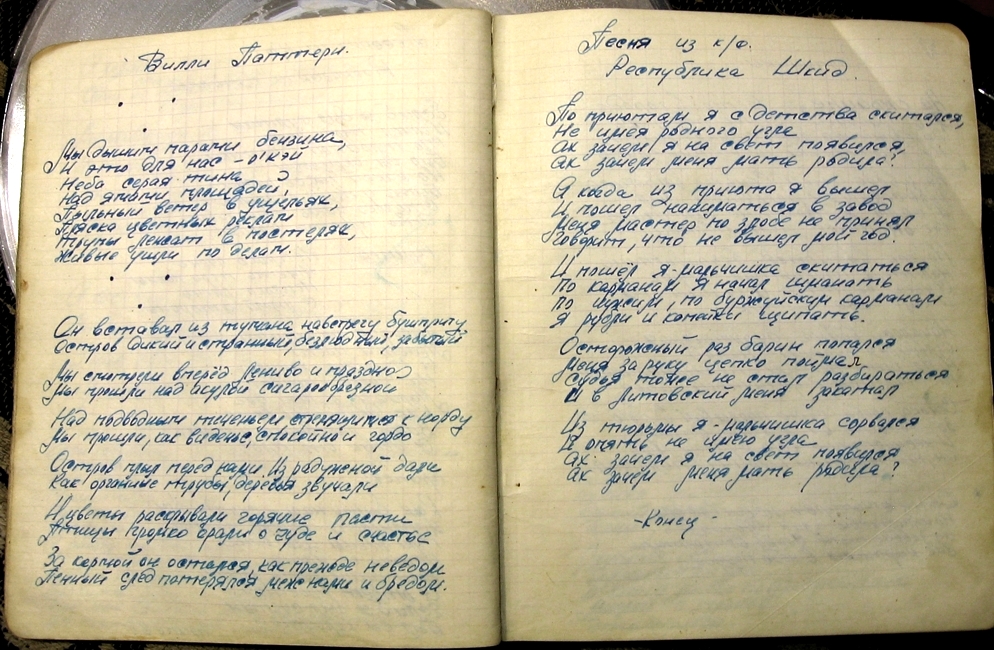 Вилли Паттерн.
Мы дышим парами бензина,
И это для нас – о'кэй
Неба серая тина
Над ямами площадей,
Пыльный ветер в ущельях,
Пляска цветных реклам
Трупы лежат в постелях,
Живые ушли по делам.
Он вставал из тумана навстречу бушприту
Остров дикий и странный, безлюдный, забытый
Мы смотрели вперёд лениво и праздно
Мы прошли над акулой сигарообразной
Над подводным теченьем, стремящимся к норду
Мы прошли, как виденье, спокойно и гордо
Остров плыл перед нами. Из радужной дали
Как органные трубы, деревья звучали
И цветы раскрывали горячие пасти
Птицы громко орали о чуде и счастье
За кормой он остался, как прежде неведом
Пенный след потерялся меж нами и бредом.
Песня из к/ф.
Республика Шкид.
По приютам я с детства скитался,
Не имея родного угла
Ах зачем я на свет появился,
Ах зачем меня мать родила?
А когда из приюта я вышел
И пошел наниматься в завод
Меня мастер по злобе не принял
Говорит, что не вышел мой год.
И пошёл я-мальчишка скитаться
По карманам я начал шманать
По чужим, по буржуйским карманам
Я рубли и копейки щипать.
Осторожный раз барин попался
Меня за руку цепко поймал
Судья тоже не стал разбираться
И в Литовский меня закатал
Из тюрьмы я-мальчишка сорвался
И опять не имею угла
Ах зачем я на свет появился
Ах зачем меня мать родила?
-Конец-